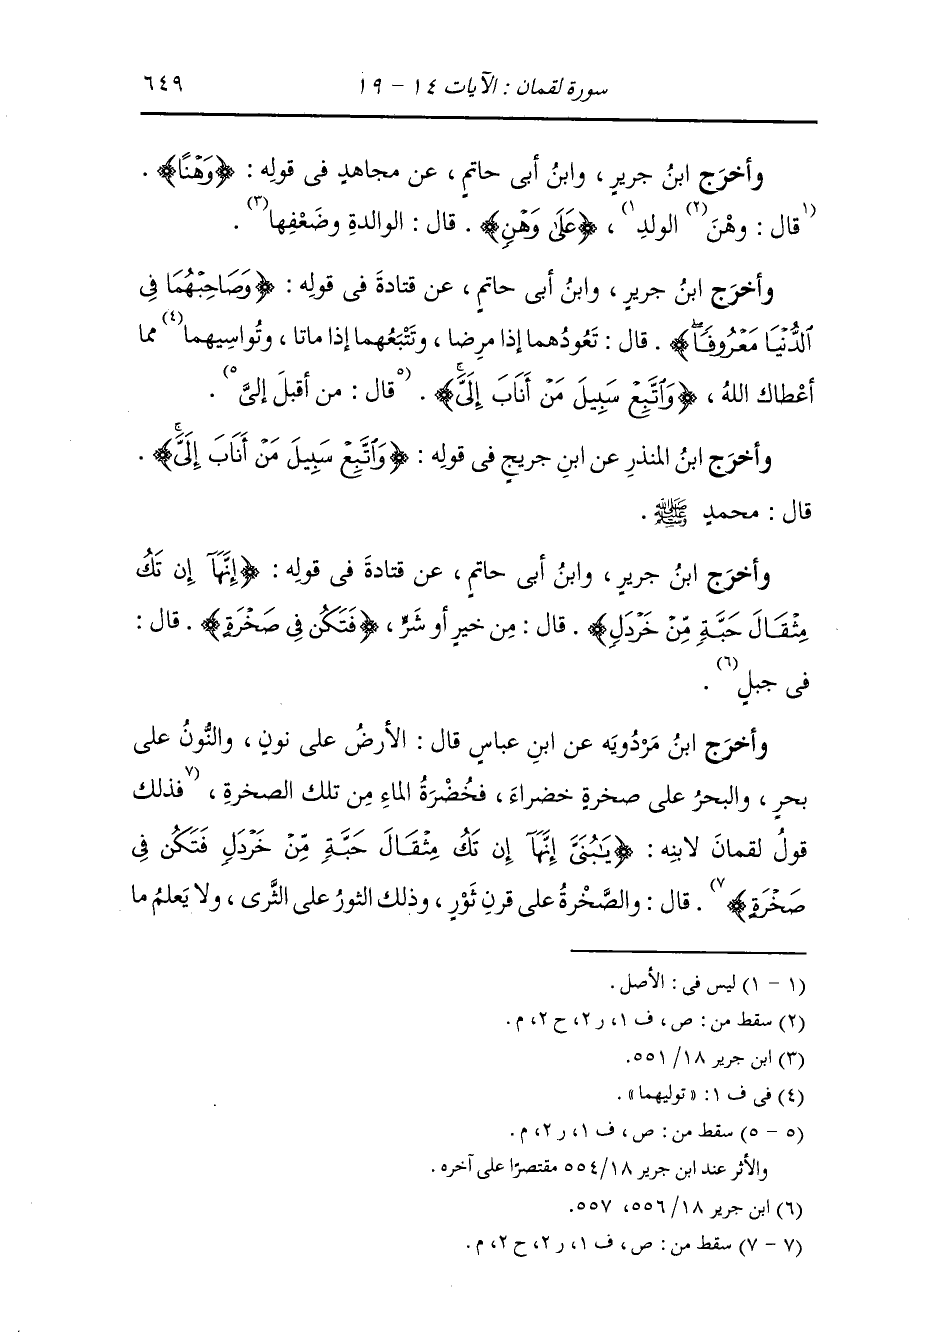 سورة لقمان : الآيات ١٤ - ١٩ ٦٤٩
وأخرَج ابنُ جريرٍ ، وابنُ أبى حاتمٍ ، عن مجاهدٍ فى قولِه : ﴿وَهْنًا﴾ .
(١قال : وهْنَ(٢) الولدِ١) ، ﴿عَلَىٰ وَهْنٍ﴾ . قال : الوالدةِ وضَعْفِها(٣) .
وأخرَج ابنُ جريرٍ ، وابنُ أبى حاتمٍ ، عن قتادةَ فى قولِه : ﴿وَصَاحِبْهُمَا فِى
ٱلدُّنْيَا مَعْرُوفًا ۖ﴾ . قال : تَعُودُهما إذا مرِضا ، وتَتْبَعُهما إذا ماتا ، وتُواسِيهما(٤) مما
أعْطاك اللهُ ، ﴿وَٱتَّبِعْ سَبِيلَ مَنْ أَنَابَ إِلَىَّ ۚ﴾ . (٥قال : من أقبلَ إلىَّ٥) .
وأخرَج ابنُ المنذرِ عن ابنِ جريجٍ فى قولِه : ﴿وَٱتَّبِعْ سَبِيلَ مَنْ أَنَابَ إِلَىَّ ۚ﴾ .
قال : محمدٍ ﷺ .
وأخرَج ابنُ جريرٍ ، وابنُ أبى حاتمٍ ، عن قتادةَ فى قولِه : ﴿إِنَّهَآ إِن تَكُ
مِثْقَالَ حَبَّةٍ مِّنْ خَرْدَلٍ﴾ . قال : مِن خيرٍ أو شَرٍّ ، ﴿فَتَكُن فِى صَخْرَةٍ﴾ . قال :
فى جبلٍ(٦) .
وأخرَج ابنُ مَرْدُويَه عن ابنِ عباسٍ قال : الأرضُ على نونٍ ، والنُّونُ على
بحرٍ ، والبحرُ على صخرةٍ خضراءَ ، فخُضْرَةُ الماءِ مِن تلك الصخرةِ ، (٧فذلك
قولُ لقمانَ لابنِه : ﴿يَٰبُنَىَّ إِنَّهَآ إِن تَكُ مِثْقَالَ حَبَّةٍ مِّنْ خَرْدَلٍ فَتَكُن فِى
صَخْرَةٍ﴾٧) . قال : والصَّخْرةُ على قرنِ ثَوْرٍ ، وذلك الثورُ على الثَّرى ، ولا يَعلمُ ما
(١ - ١) ليس فى : الأصل .
(٢) سقط من : ص ، ف ١، ر ٢، ح ٢، م .
(٣) ابن جرير ١٨/ ٥٥١.
(٤) فى ف ١: «توليهما» .
(٥ - ٥) سقط من : ص ، ف ١، ر ٢، م .
والأثر عند ابن جرير ١٨/ ٥٥٤ مقتصرًا على آخره .
(٦) ابن جرير ١٨/ ٥٥٦، ٥٥٧.
(٧ - ٧) سقط من : ص ، ف ١، ر ٢، ح ٢، م .